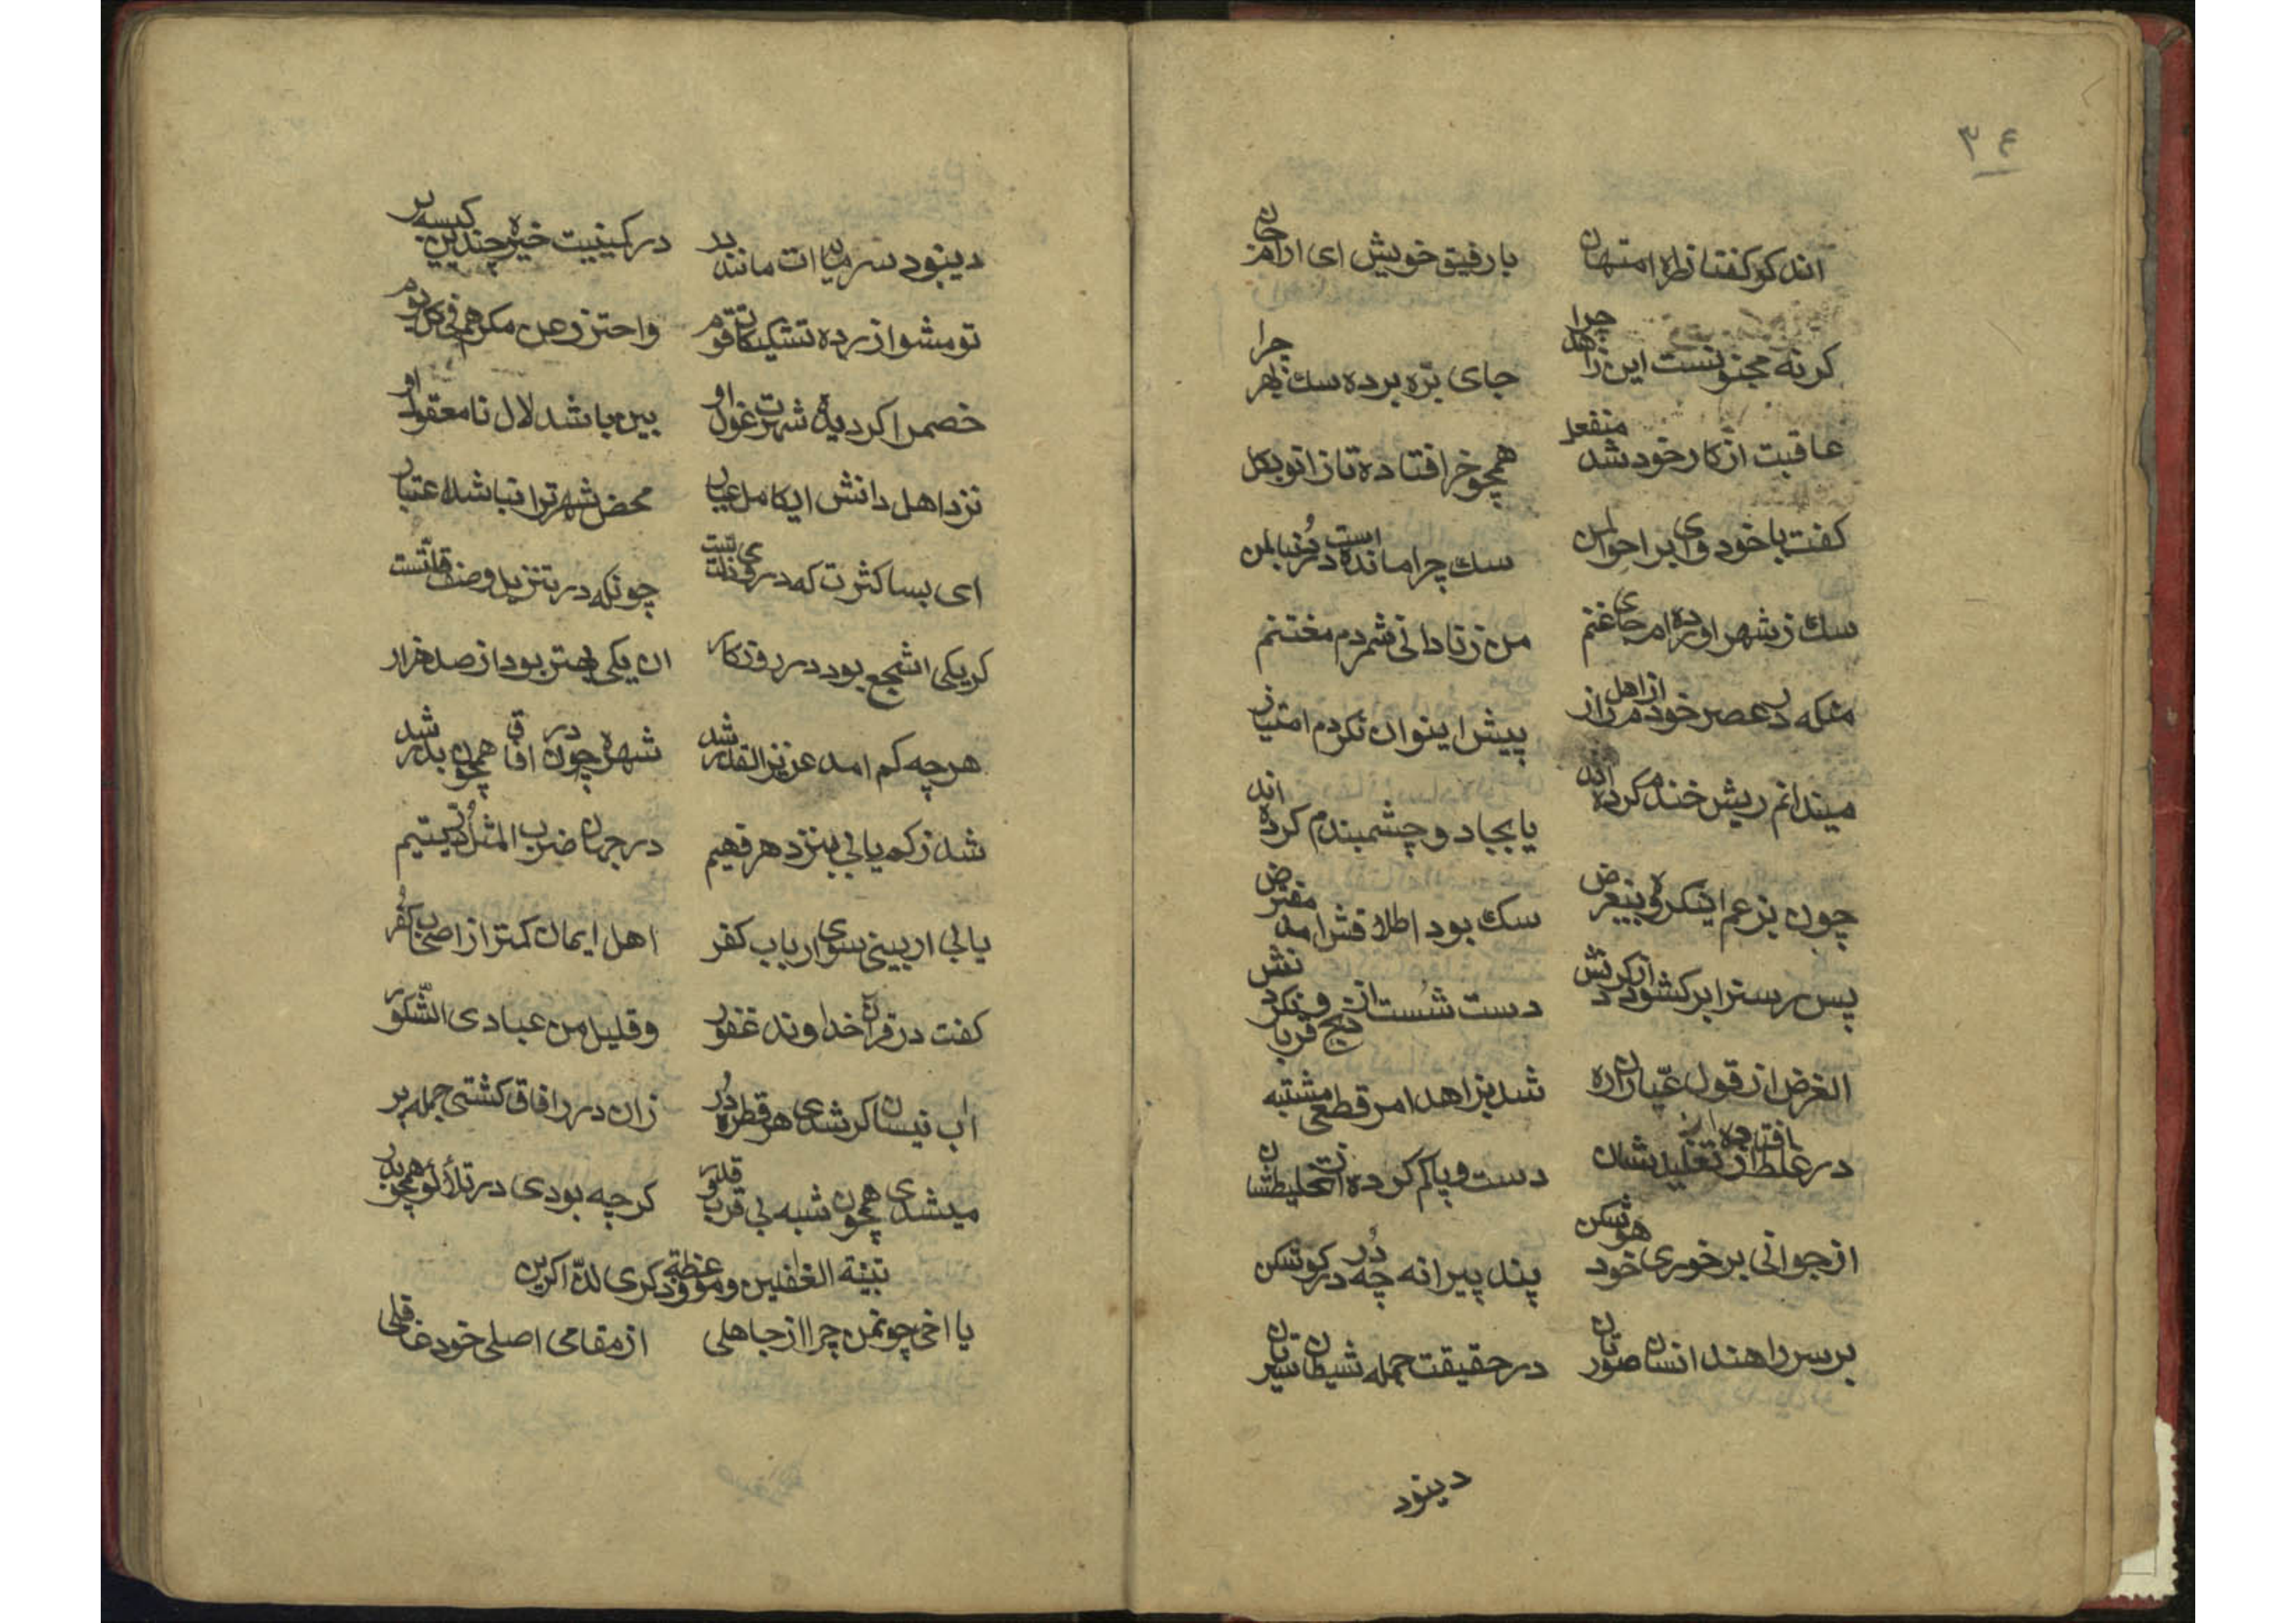 ۳۴
اندکو کفتا ز راه امتهان بارفیق خویش ای ارام جان
کرنه مجنونست این زاهد چرا جای بزه برده سك ظاهر چرا
عاقبت از کار خود شد منفعل همچو خر افتاده تا زانو بکل
کفت با خود وای بر احوالمن سك چرا مانده است در دنبالمن
سك ز شهر اورده ام جای غنم من ز نادانی شمردم مغتنم
منکه در عصر خودم از اهل راز پیش اینوان نکردم امتیاز
میندانم ریش خندم کرده اند یا بجادو چشمبندم کرده اند
چون بزعم اینکروه بیغرض سك بود اطلاقش امد مفترض
پس رسنرا برکشود از کردنش دست شست از ذبح و فکر قربانش
الغرض از قول عیاران ره شد بزاهد امر قطعی مشتبه
در غلط افتاده از تغلیدشان دست و پا کم کرده از تخلیطشان
از جوانی برخوری خود هوشکن پند پیرانه چه در در کوشکن
بر سر راهند انسان صورتان در حقیقت جمله شیطان سیرتان
دینود
دینود سرمایه ات مانند بر در کمینیت خیره چندین کیسه بر
تو مشو از رده تشکیکات قوم واحترز عن مکرهم فی کل یوم
خصمرا کر دیده شهرت غول او بین مباشد لال نامعقول او
نزد اهل دانش ایکامل عیار محض شهرترا نباشد اعتبار
ای بسا کثرت که در وی ذلتست چونکه در تنزیل وصف قلتست
کر یکی اشجع بود در روزکار ان یکی بهتر بود از صد هزار
هرچه کم امد عزیز القدر شد شهره چون در افاق همچون بدر شد
شد ز کم یابی بنزد هر فهیم در جهان ضرب المثل در یتیم
یابی ار بینی سوی ارباب کفر اهل ایمان کمتر از اصحاب کفر
کفت در قران خداوند غفور وقلیل من عبادی الشکور
اب نیسان کر شدی هر قطره در زان در افاق کشتی جمله پر
میشدی همچون شبه بی قرب و قدر کرچه بودی در تلألؤ همچو بدر
تنبیه الغفلین وموعظة وذکری للذاکرین
یا اخی چونمن چرا از جاهلی از مقامی اصلی خود غافلی